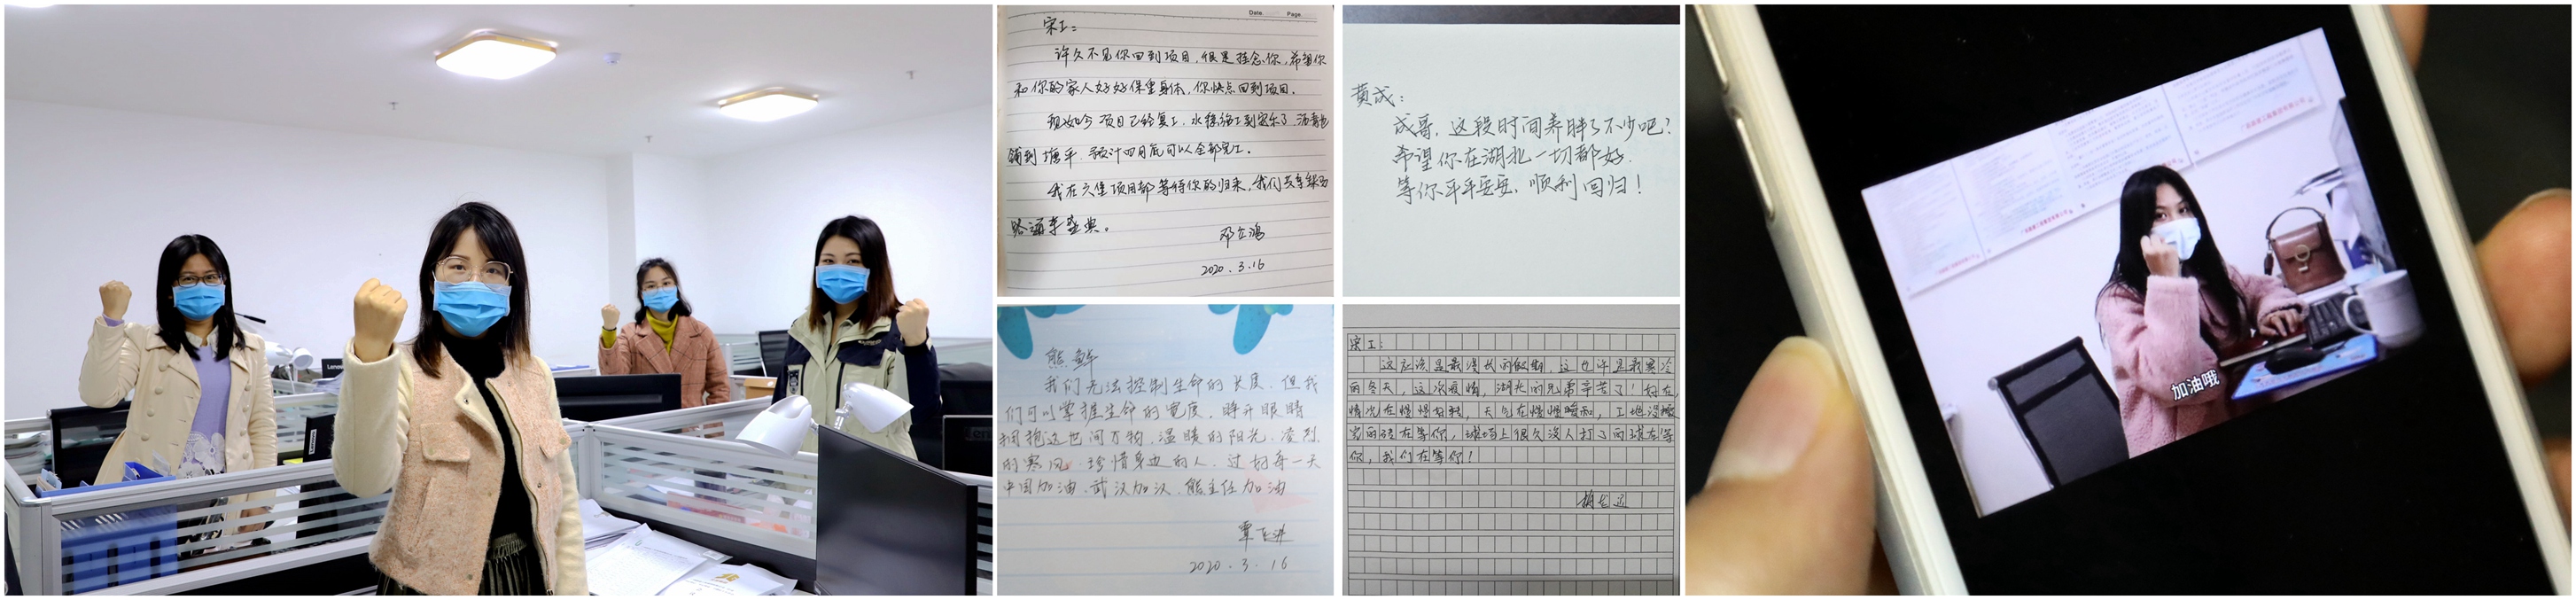 Date. Page.
宋工：
许久不见你回到项目，很是挂念你，希望你
和你的家人好好保重身体，你快点回到项目。
现如今项目已经复工，水稳施工到安乐了，沥青也
铺到塘平，预计四月底可以全部完工。
我在六堡项目部等待你的归来，我们共享纵马
路通车盛典。
邓立鸿
2020.3.16
黄成：
成哥，这段时间养胖了不少吧？
希望你在湖北一切都好.
等你平平安安、顺利回归！
熊鲜
我们无法控制生命的长度，但我
们可以掌握生命的宽度，睁开眼睛
拥抱这世间万物，温暖的阳光、凌烈
的寒风，珍惜身边的人，过好每一天
中国加油、武汉加汉、熊主任加油
覃飞
2020.3.16
宋工：
这应该是最漫长的假期，这也许是最寒冷
的冬天，这次疫情，湖北的兄弟辛苦了！好在，
情况在慢慢好转，天气在慢慢暖和，工地没搬
完的砖在等你，球场上很久没人打了的球在等
你，我们在等你！
加油哦
Lenovo